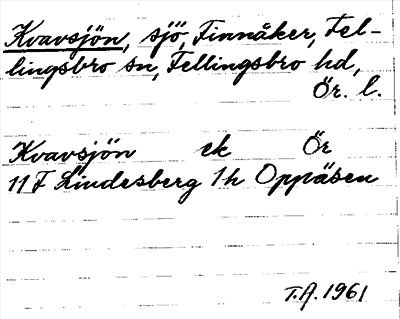 Kvavsjön, sjö, Finnåker, Fel-
lingsbro sn, Fellingsbro hd,
Ör. l.
Kvavsjön ek Ör
11 F Lindesberg 1h Oppåsen
T.A. 1961